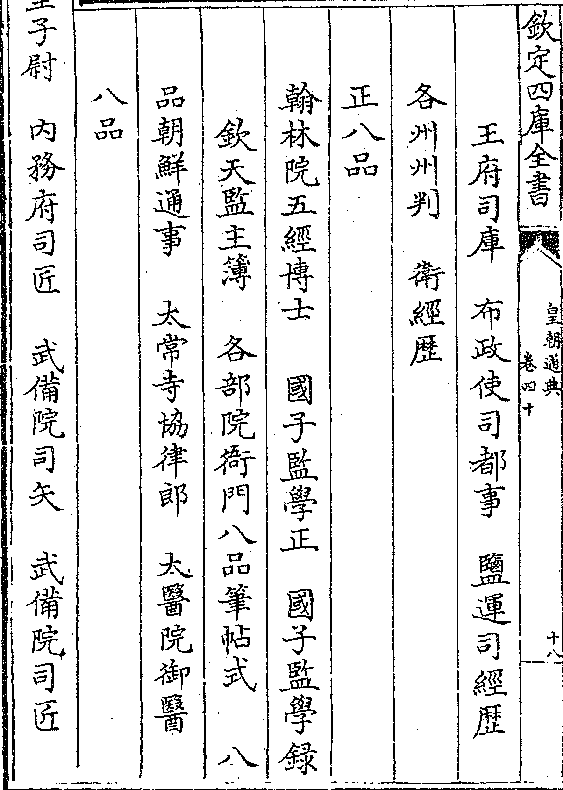 欽定四庫全書
皇朝通典
卷四十
十八
王府司庫 布政使司都事 鹽運司經歷
各州州判 衛經歷
正八品
翰林院五經博士 國子監學正 國子監學録
欽天監主簿 各部院衙門八品筆帖式 八
品朝鮮通事 太常寺協律郎 太醫院御醫
八品
子尉 内務府司匠 武備院司矢 武備院司匠